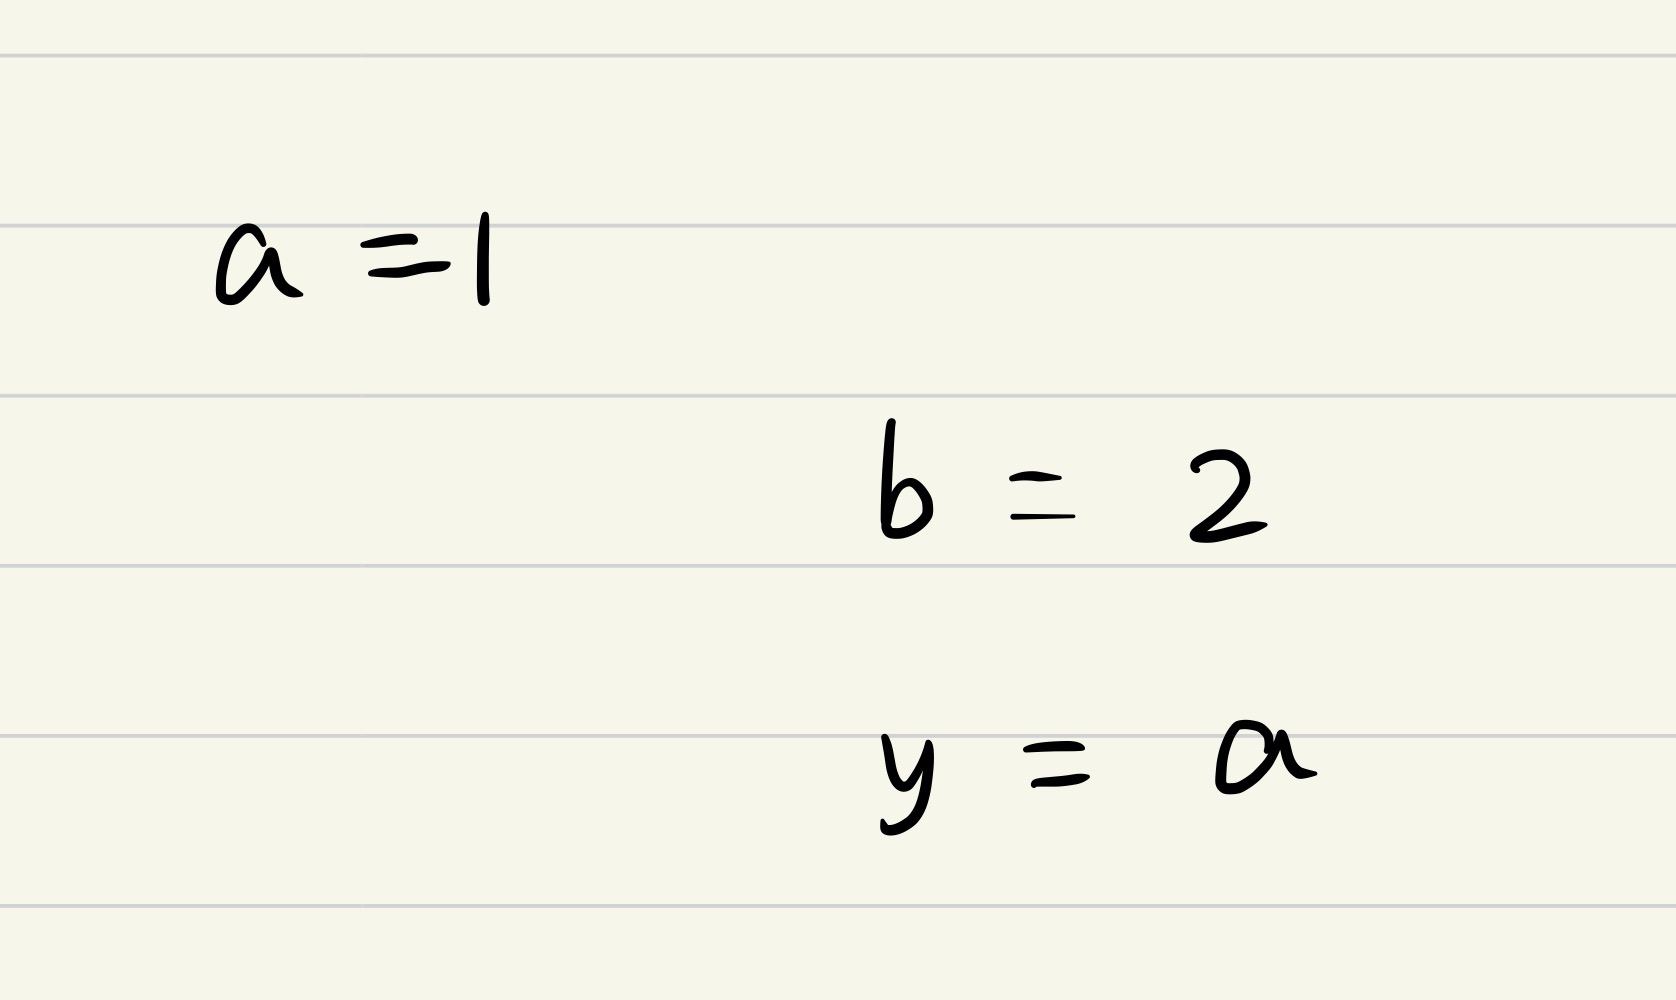 a = 1
b = 2
y = a